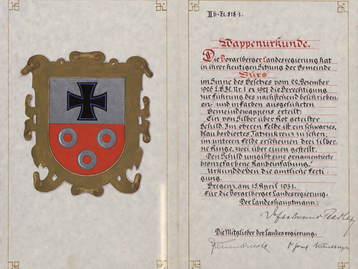 Wappenurkunde.
Die Vorarlberger Landesregierung hat
in ihrer heutigen Sitzung der Gemeinde
Bürs
im Sinne des Gesetzes vom 22. Dezember
die Berechtigung
zur Führung des nachstehend beschriebe-
nen und in Farben ausgeführten
Gemeindewappens erteilt:
Ein von Silber über Rot geteilter
Schild. Im oberen Felde ist ein schwarzes,
blau bordiertes Tatzenkreuz zu sehen,
im unteren Felde erscheinen drei silber-
ne Ringe, zwei über einen gestellt.
Den Schild umgibt eine ornamentierte
bronzefarbene Randeinfassung.
Urkund dessen die amtliche Ferti-
gung.
Bregenz, am 15. April 1931.
Für die Vorarlberger Landesregierung.
Der Landeshauptmann:
Die Mitglieder der Landesregierung: